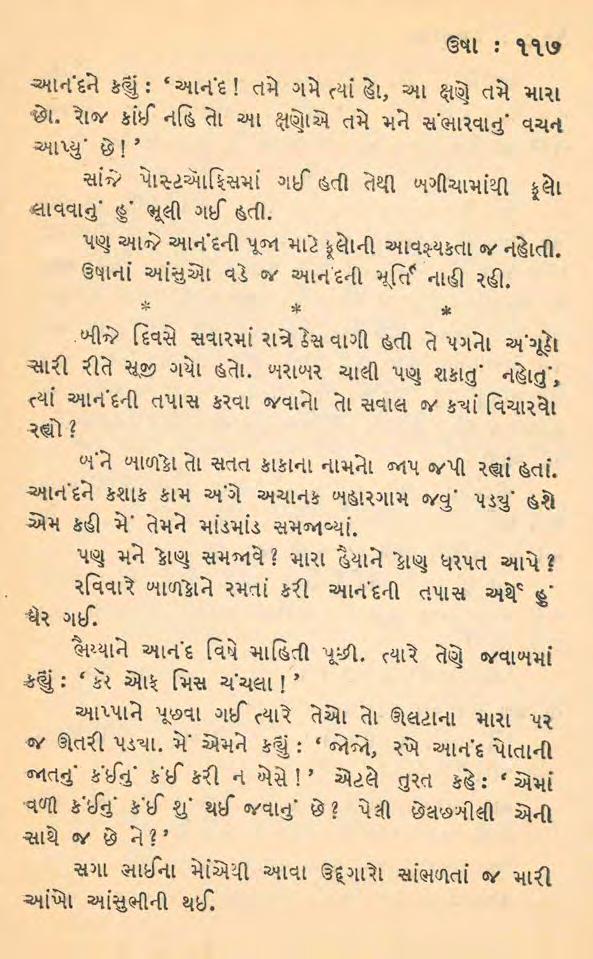 ઉષા : ૧૧૭
આનંદને કહ્યું : ‘આનંદ! તમે ગમે ત્યાં હો, આ ક્ષણે તમે મારા
છો. રોજ કાંઈ નહિ તો આ ક્ષણોએ તમે મને સંભારવાનું વચન
આપ્યું છે!’
સાંજે પોસ્ટઑફિસમાં ગઈ હતી તેથી બગીચામાંથી ફૂલો
લાવવાનું હું ભૂલી ગઈ હતી.
પણ આજે આનંદની પૂજા માટે ફૂલોની આવશ્યકતા જ નહોતી.
ઉષાનાં આંસુઓ વડે જ આનંદની મૂર્તિ નાહી રહી.
* * *
બીજે દિવસે સવારમાં રાત્રે ઠેસ વાગી હતી તે પગનો અંગૂઠો
સારી રીતે સૂજી ગયો હતો. બરાબર ચાલી પણ શકાતું નહોતું,
ત્યાં આનંદની તપાસ કરવા જવાનો તો સવાલ જ કયાં વિચારવો
રહ્યો?
બંને બાળકો તો સતત કાકાના નામનો જાપ જપી રહ્યાં હતાં.
આનંદને કશાક કામ અંગે અચાનક બહારગામ જવું પડયું હશે
એમ કહી મેં તેમને માંડમાંડ સમજાવ્યાં.
પણ મને કોણ સમજાવે? મારા હૈયાને કોણ ધરપત આપે?
રવિવારે બાળકોને રમતાં કરી આનંદની તપાસ અર્થે હું
ઘેર ગઈ.
ભૈય્યાને આનંદ વિષે માહિતી પૂછી. ત્યારે તેણે જવાબમાં
કહ્યું : ‘કેર ઓફ મિસ ચંચલા!’
આપ્પાને પૂછવા ગઈ ત્યારે તેઓ તો ઊલટાના મારા પર
જ ઊતરી પડયા. મેં એમને કહ્યું : ‘જોજો, રખે આનંદ પોતાની
જાતનું કંઈનું કંઈ કરી ન બેસે!’ એટલે તુરત કહે : ‘એમાં
વળી કંઈનું કંઈ શું થઈ જવાનું છે? પેલી છેલછબીલી એની
સાથે જ છે ને?’
સગા ભાઈના મોંએથી આવા ઉદ્ગારો સાંભળતાં જ મારી
આંખો આંસુભીની થઈ.